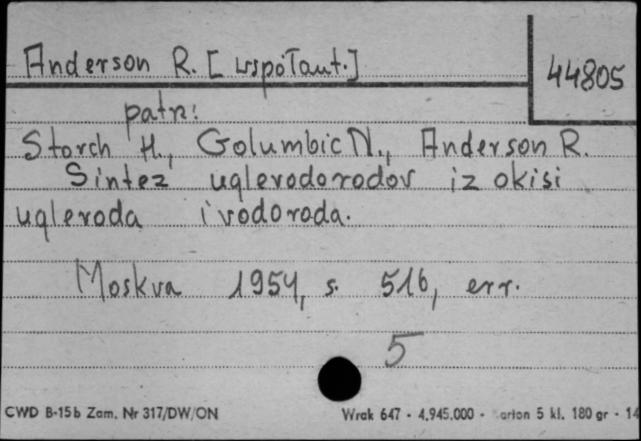 Anderson R. [współaut.]
44805
patrz:
Storch H., Golumbic N., Anderson R.
Sintez uglevodorodov iz okisi
ugleroda i vodoroda.
Moskva 1954, s. 516, err.
5
CWD B-15b Zam. Nr 317/DW/ON
Wrak 647 - 4.945.000 - arton 5 kl. 180 gr - 14